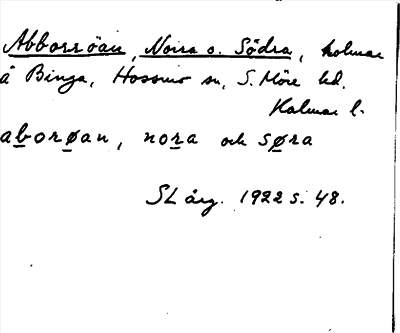 Abborröan, Norra o. Södra, holmar
å Binga, Hossmo sn, S. Möre hd.
Kalmar l.
aborøan, nora och søra
SL årg. 1922 s. 48.